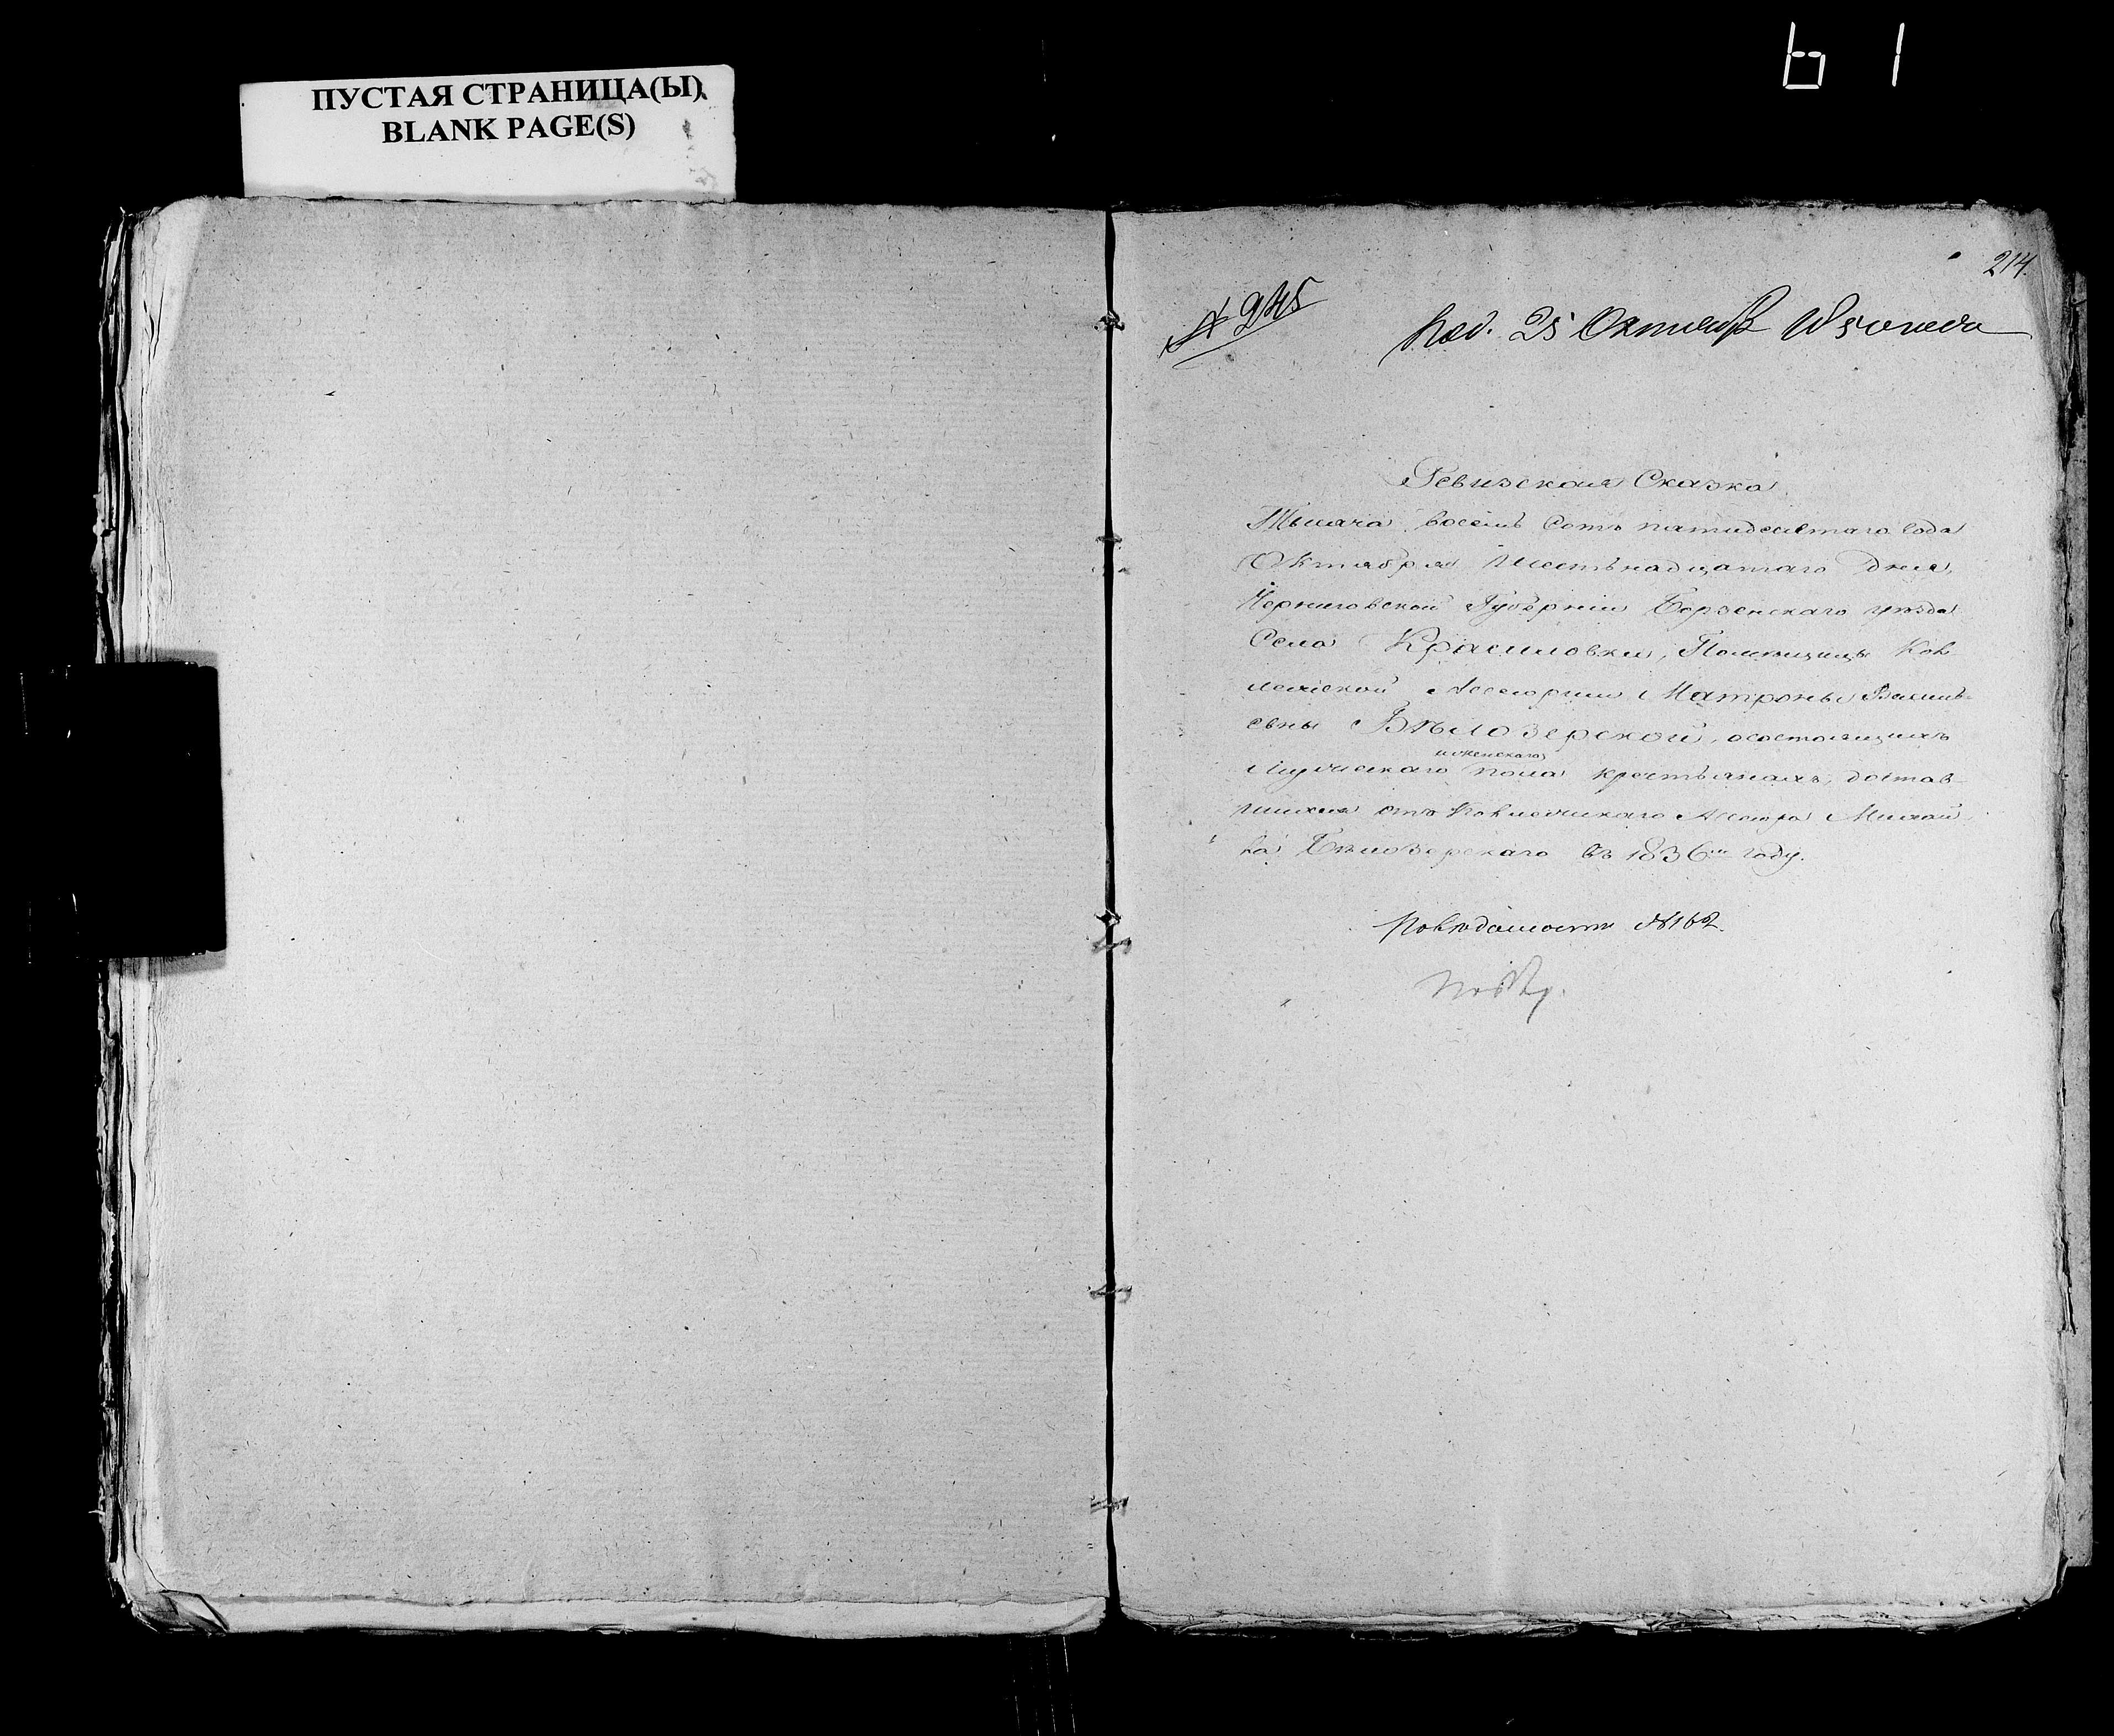 ПУСТАЯ СТРАНИЦА(Ы)
BLANK PAGE(S)
61
214.
№ 945
Под. 25 Октября 1850 года
Ревизская Сказка
Тысяча восемь сотъ пятидесятаго года
Октября шестьнадцатаго дня,
Черниговской Губерніи Борзенскаго уѣзда
Села Красиловки, Помѣщицы Кол
лежской Ассесорши Матроны Василь
евны Бѣлозерской, осостоящихъ
и женскаго
мужескаго пола крестьянахъ, достав
шихся отъ Коллежскаго Ассесора Михай
ла Бѣлозерскаго въ 1836м году.
По вѣдомости №162.